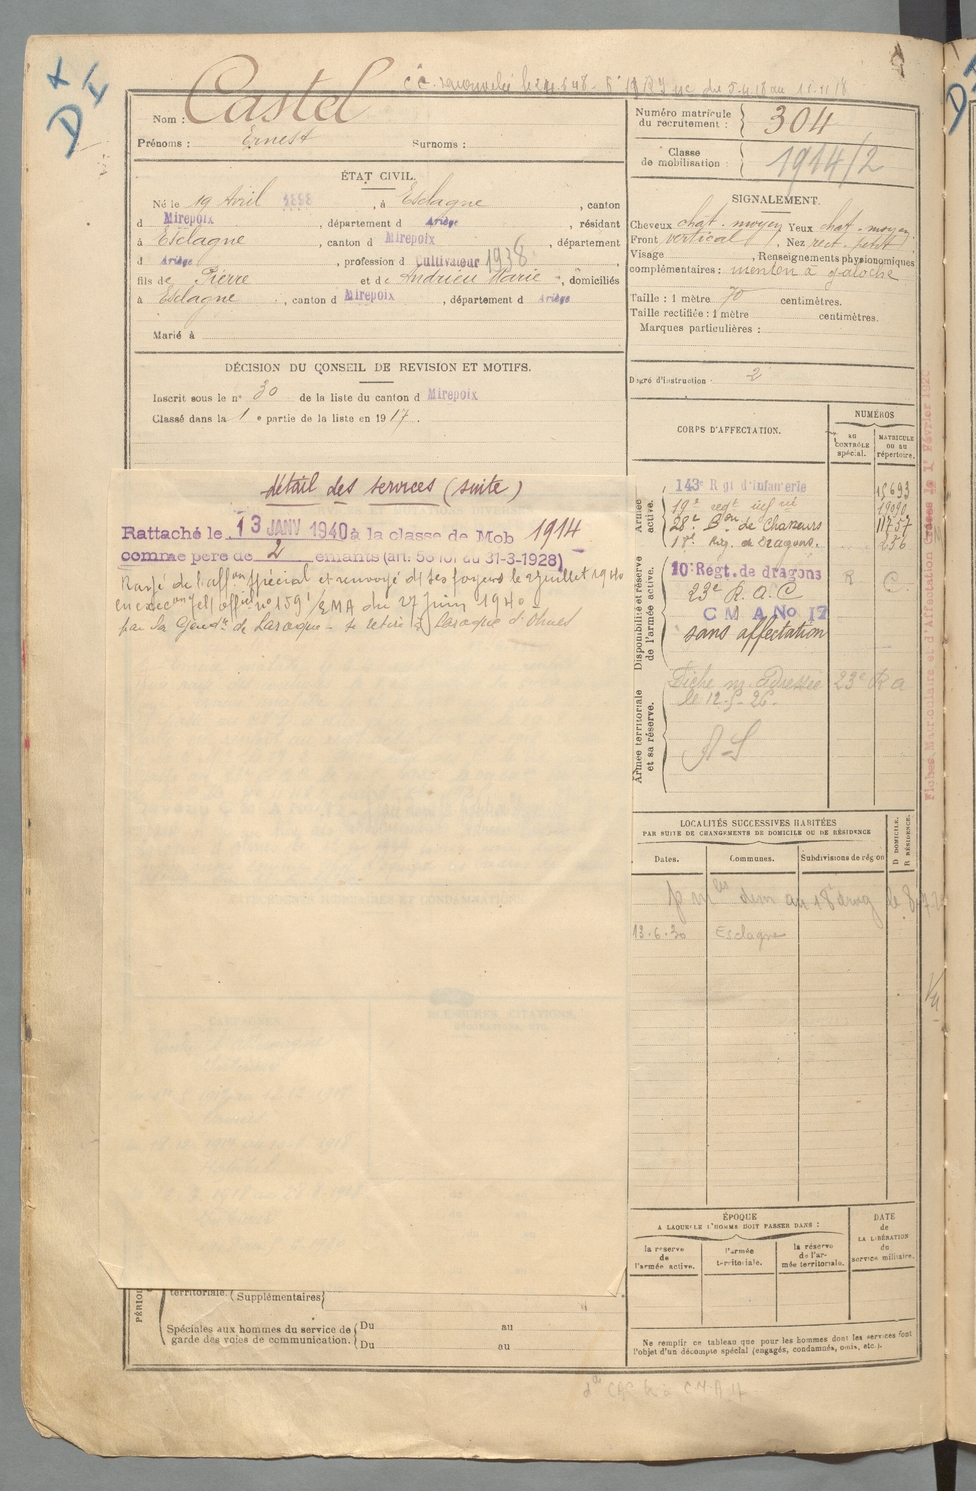 C.C. renouvelée le
Castel
Nom :
Prénoms : Ernest Surnoms :
Numéro matricule du recrutement : 304
Classe de mobilisation : 1914/2
ÉTAT CIVIL.
Né le 19 Avril 1898, à Esclagne, canton
d Mirepoix, département d Ariège, résidant
à Esclagne, canton d Mirepoix, département
d Ariège, profession d Cultivateur 1938
fils de Pierre et de Andrieu Marie, domiciliés
à Esclagne, canton d Mirepoix, département d Ariège
Marié à
SIGNALEMENT.
Cheveux chat. moyen Yeux chat. moyen
Front vertical, Nez rect. petit
Visage , Renseignements physionomiques
complémentaires : menton à galoche
Taille : 1 mètre 70 centimètres.
Taille rectifiée : 1 mètre centimètres.
Marques particulières :
Degré d'instruction : 2
DÉCISION DU CONSEIL DE REVISION ET MOTIFS.
Inscrit sous le n° 30 de la liste du canton d Mirepoix
Classé dans la 1 e partie de la liste en 1917.
détail des services (suite)
Rattaché le 13 JANV 1940 à la classe de Mob 1914
comme père de 2 enfants (art. 58 loi du 31-3-1928)
Rayé de l'aff on spécial et renvoyé ds ses foyers le 2 juillet 1940
du 27 juin 1940
par la Gend ie de Laroque - se retire à Laroque d'Olmes
CORPS D'AFFECTATION.
NUMÉROS
au CONTRÔLE spécial.
MATRICULE ou au répertoire.
Armée active.
143e Rgt d'Infanterie 15693
19e regt inf ie 19090
28e B on de Chasseurs 11757
18e Reg. de Dragons. 256
Disponibilité et réserve de l'armée active.
10e Régt. de dragons R C.
23e R.A.C
C M A No 17
sans affectation
Armée territoriale et sa réserve.
Fiche m. adressée 23e Ra
le 12-5-26.
Fiches Matriculaire et d'Affectation Créées le 1er Février 1920
LOCALITÉS SUCCESSIVES HABITÉES
PAR SUITE DE CHANGEMENTS DE DOMICILE OU DE RÉSIDENCE
D DOMICILE. R RÉSIDENCE.
Dates. Communes. Subdivisions de région
13-6-30 Esclagne
ÉPOQUE
A LAQUELLE L'HOMME DOIT PASSER DANS :
la réserve de l'armée active.
l'armée territoriale.
la réserve de l'armée territoriale.
DATE de LA LIBÉRATION du service militaire.
territoriale. (Supplémentaires)
Spéciales aux hommes du service de garde des voies de communication.
Du au
Du au
Ne remplir ce tableau que pour les hommes dont les services font
l'objet d'un décompte spécial (engagés, condamnés, omis, etc.).